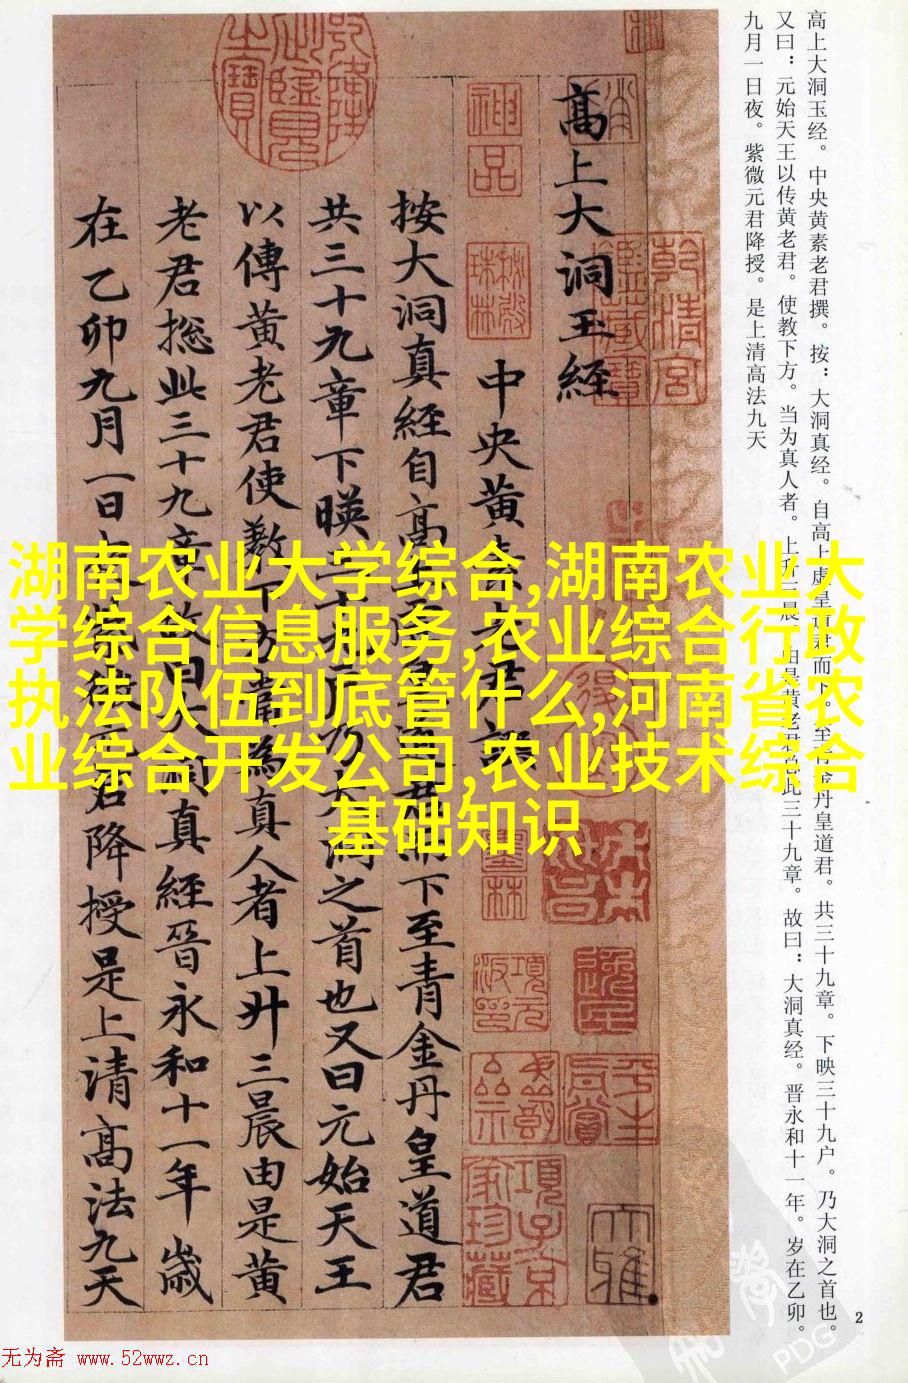 高上大洞玉经。中央黄素老君撰。按：大洞真经。自高上虚皇道君而下。至青金丹皇道君。共三十九章。下映三十九户。乃大洞之首也。
又曰：元始天王以传黄老君。使教下方。当为真人者。上升三晨。由是黄老君总此三十九章。故曰：大洞真经。晋永和十一年。岁在乙卯。
九月一日夜。紫微元君降授。是上清高法九天
高上大洞玉經
中央黄素老君
按大洞真經自高 下至青金丹皇道君
共三十九章下暎三十 户乃大洞之首也又曰元始天王
以傳黄老君使教下方當為真人者上升三晨由是黄
老君揔此三十九章故曰大洞真經晉永和十一年歲
在乙卯九月一日夜紫微元君降授是上清高法九天
神品
乾清宫鑑藏寶
墨林
項子京家珍藏
湖南农业大学综合,湖南农业大
学综合信息服务,农业综合行政
执法队伍到底管什么,河南省农
业综合开发公司,农业技术综合
基础知识
2
PDG
无为斋 www.52wwz.cn